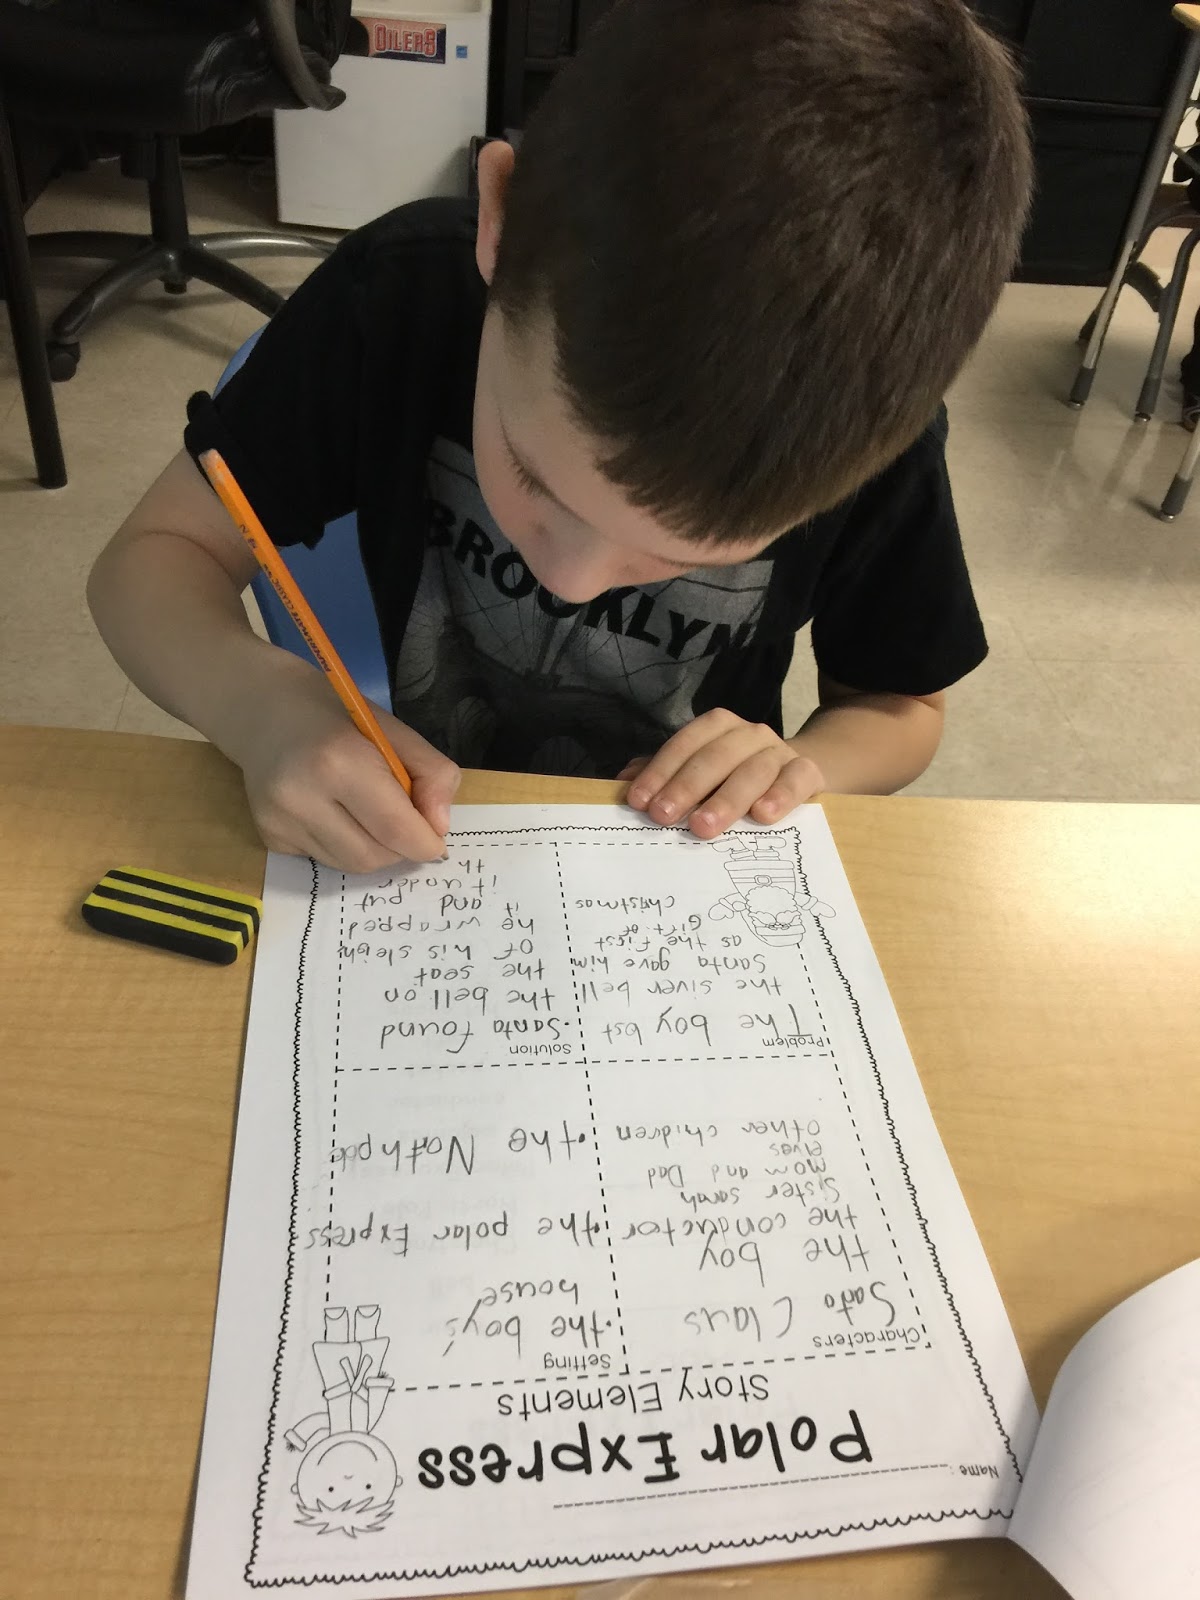 OILERS
BROOKLYN
PAPERMATE CLASSIC
Name:
Polar Express
Story Elements
Characters
Santa Claus
the boy
the conductor
Sister sarah
mom and Dad
elves
other children
Setting
•the boy's
house
•the polar Express
•the North pole
Problem
The boy lost
the siver bell
Santa gave him
as the first
Gift of
christmas
Solution
•Santa found
the bell on
the seat
of his sleigh
he wrapped
it and put
it under
th